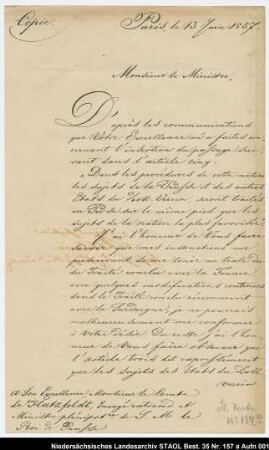 Copie.
Paris, le 13 Juin 1857.
Monsieur le Ministre,
D'après les communications
que Votre Excellence m'a faites con-
cernant l'insertion du passage sui-
vant dans l'article cinq:
"Dans les procédures de cette nature
les sujets de la Prusse et des autres
Etats du Zoll Verein, seront traités
en Perse sur le même pied que les
sujets de la nation la plus favorisée"
J'ai l'honneur de Vous faire
savoir que mes instructions me
de me tenir au texte du
du Traité conclu avec la France,
avec quelques modifications contenues
dans le Traité conclu récemment
avec la Sardaigne, je ne pourrais
malheureusement me conformer
à Votre désir. Du reste, j'ai l'hon-
neur de Vous faire observer que
l'article trois dit
que les sujets des Etats du Zoll
verein
à Son Excellence Monsieur le Comte
de Hatzfeldt, Envoyé extraord. et
Ministre plénipot. de S. M. le
Roi de Prusse
Niedersächsisches Landesarchiv STAOL Best. 35 Nr. 157 a Aufn 001